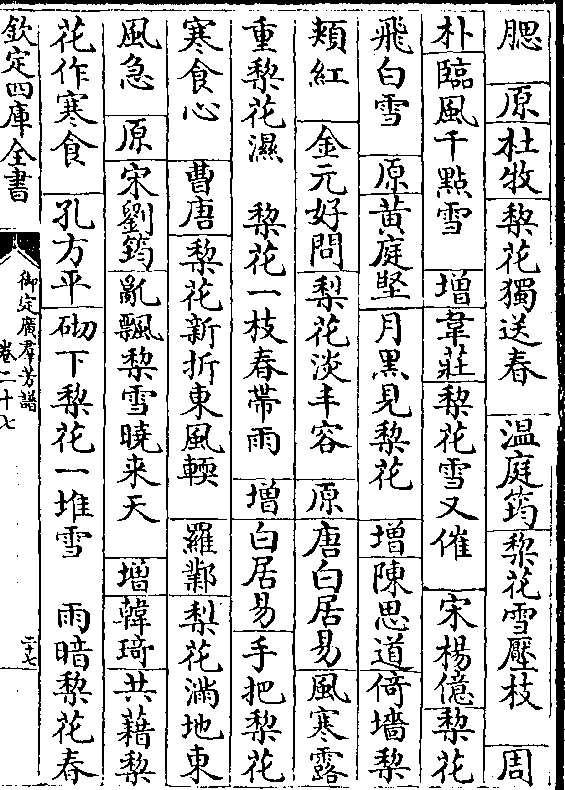 腮　原杜牧梨花獨送春　温庭筠棃花雪壓枝　周
朴臨風千點雪　增韋莊棃花雪又催　宋楊億棃花
飛白雪　原黄庭堅月黑見棃花　增陳思道倚墻棃
頰紅　金元好問梨花淡丰容　原唐白居易風寒露
重棃花濕　棃花一枝春帶雨　增白居易手把棃花
寒食心　曹唐棃花新折東風輭　羅鄴梨花滿地東
風急　原宋劉筠亂飄棃雪曉来天　增韓琦共藉棃
花作寒食　孔方平砌下棃花一堆雪　雨暗棃花春
欽定四庫全書
御定廣羣芳譜
卷二十七
二十七